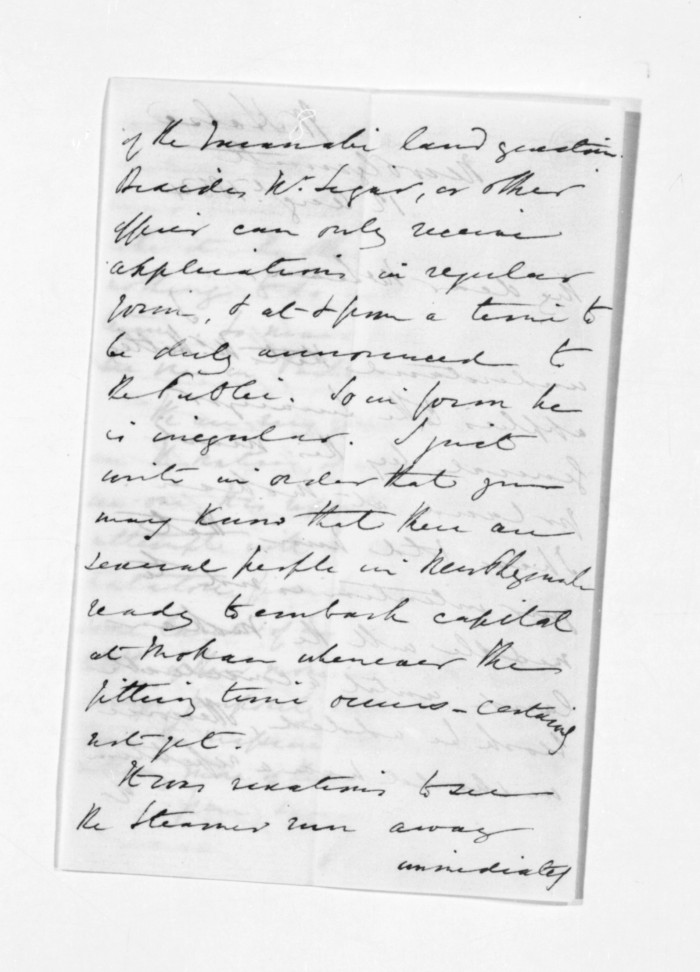 of the Taranaki land question.
Besides Mr. Ligar, or other
officer can only receive
applications in regular
form, & at & from a time to
be duly announced to
the Public. So in form he
is irregular. I just
write in order that you
may know that there are
several people in New Plymouth
ready to embark capital
at Mokau whenever the
fitting time occurs - certainly
not yet.
It was vexatious to see
the Steamer run away
immediately